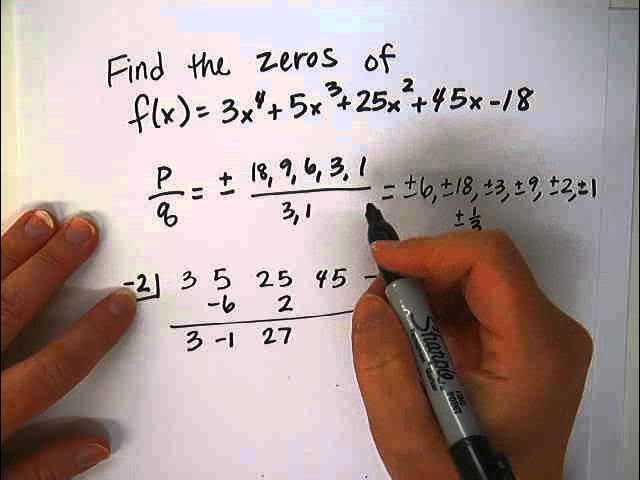 Find the zeros of
f(x) = 3x⁴ + 5x³ + 25x² + 45x - 18
p/q = ± 18, 9, 6, 3, 1 / 3, 1 = ±6, ±18, ±3, ±9, ±2, ±1
± 1/3
-2| 3 5 25 45 -
-6 2
3 -1 27
Sharpie